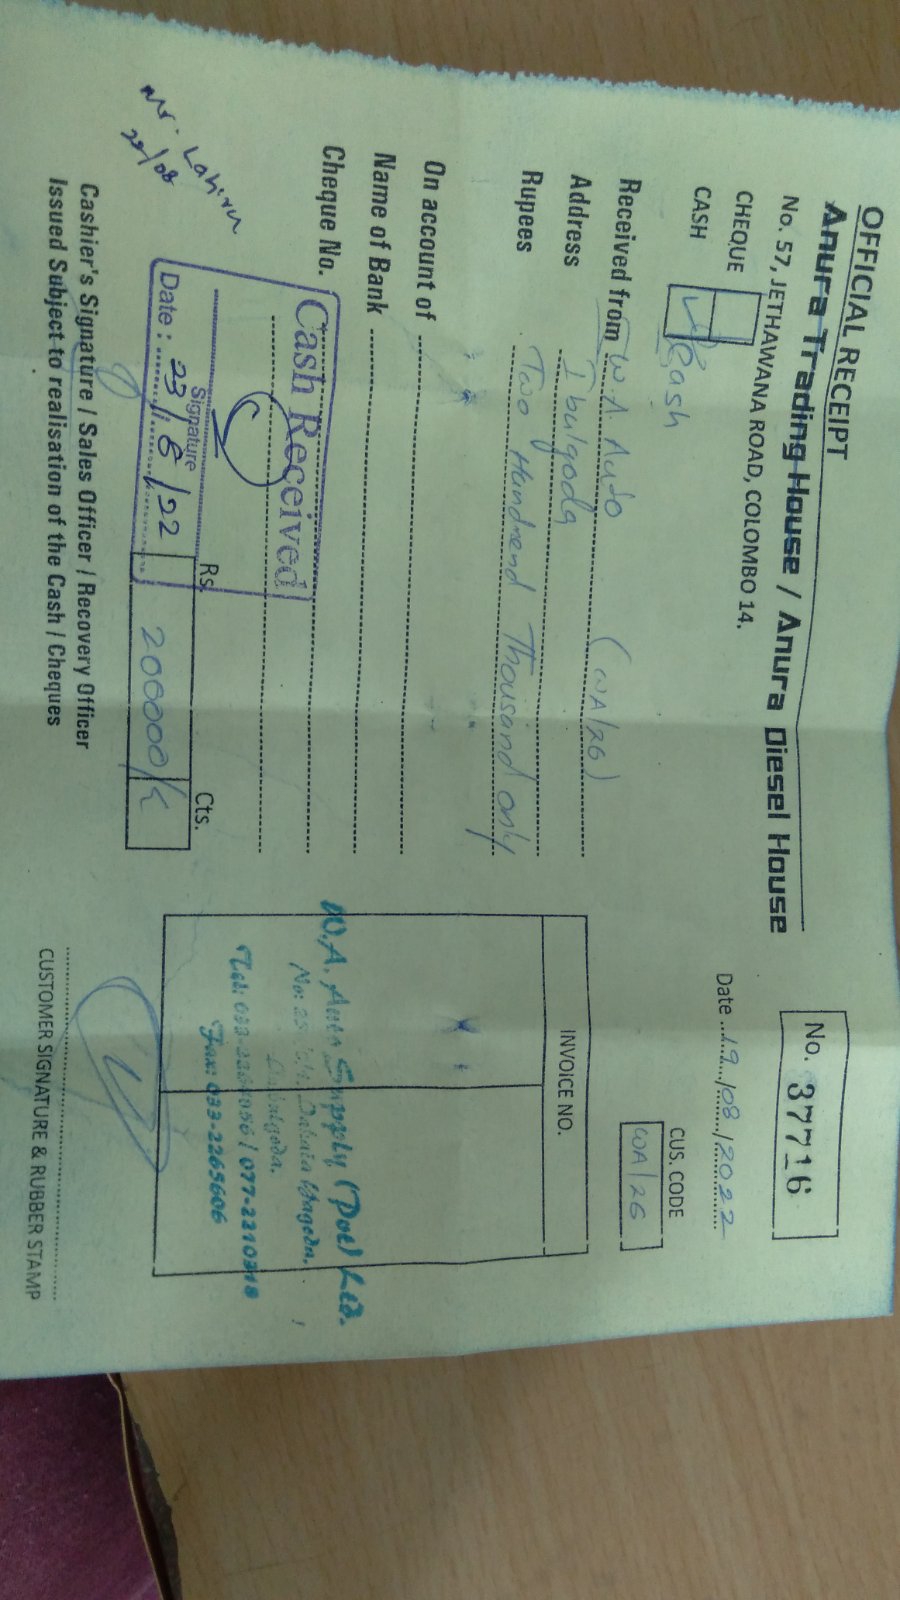 OFFICIAL RECEIPT
Anura Trading House / Anura Diesel House
No. 57, JETHAWANA ROAD, COLOMBO 14.
No. 37716
Date 19/08/2022
CHEQUE
CASH Cash
CUS. CODE
WA/26
Received from W.A. Auto (WA/26)
Address Ibulgoda
Rupees Two Handrend Thousand only
On account of
Name of Bank
Cheque No.
INVOICE NO.
Cash Received
Signature
Date : 23/8/22
Rs. Cts.
200000/
Mr. Lahiru
23/08
Cashier's Signature / Sales Officer / Recovery Officer
Issued Subject to realisation of the Cash / Cheques
W.A. Auto Supply (Pvt) Ltd.
No: 25
Tel: 033- / 077-2210318
Fax: 033-2265606
CUSTOMER SIGNATURE & RUBBER STAMP